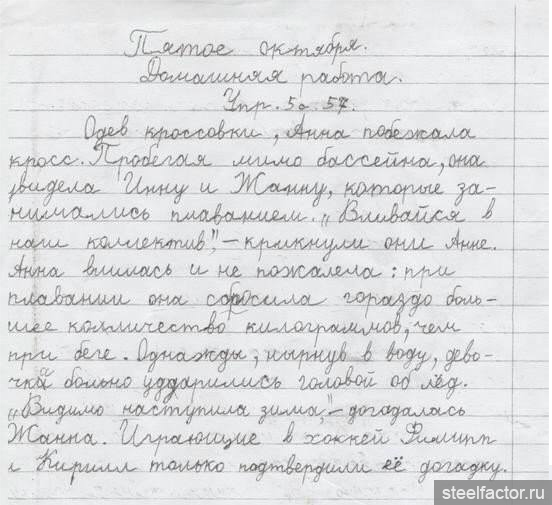 Пятое октября.
Домашняя работа.
Упр. 5 с. 57.
Одев кроссовки, Анна побежала
кросс. Пробегая мимо бассейна, она
увидела Инну и Жанну, которые за-
нимались плаванием. „Вливайся в
наш коллектив", – крикнули они Анне.
Анна влилась и не пожалела: при
плавании она сбросила гораздо боль-
шее колличество килограммов, чем
при беге. Однажды, нырнув в воду, дево-
чки больно ударились головой об лёд.
„Видимо наступила зима," – догадалась
Жанна. Играющие в хоккей Филипп
и Кирилл только подтвердили её догадку.
steelfactor.ru